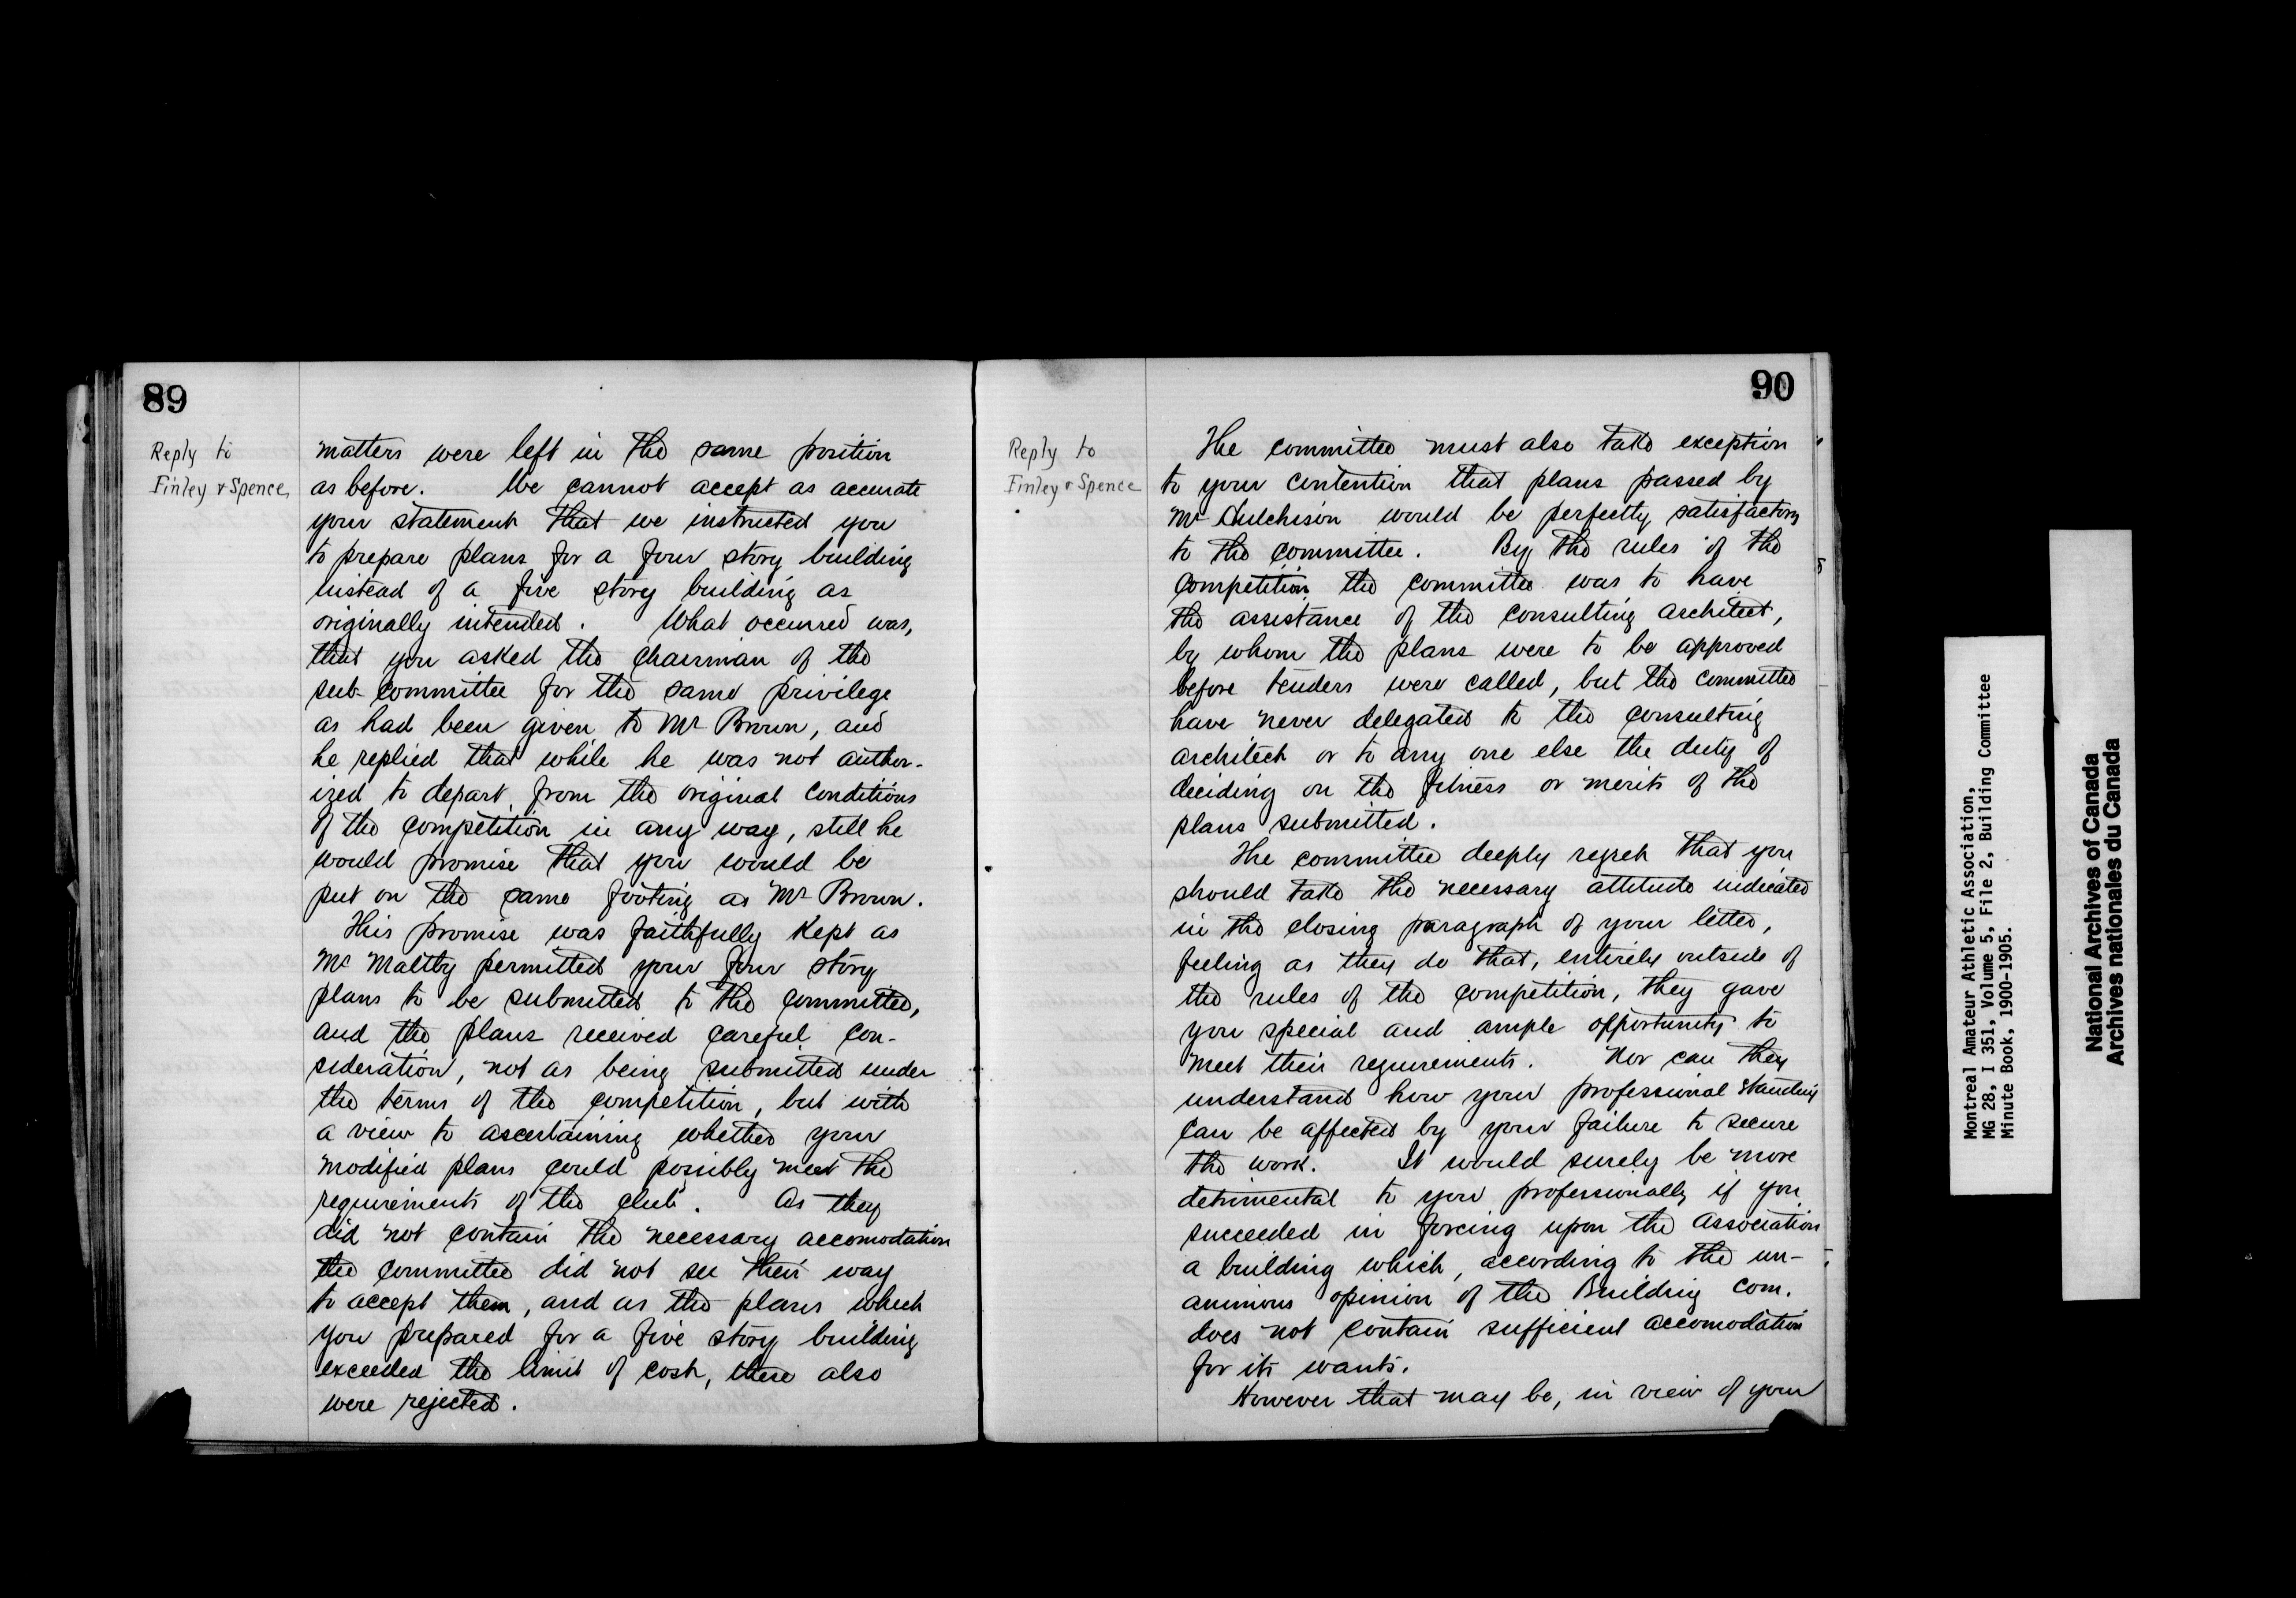 89
Reply to
Finley & Spence
matters were left in the same position
as before. We cannot accept as accurate
your statement that we instructed you
to prepare plans for a four story building
instead of a five story building as
originally intended. What occurred was,
that you asked the Chairman of the
sub-committee for the same privilege
as had been given to Mr Brown, and
he replied that while he was not author-
ized to depart from the original conditions
of the competition in any way, still he
would promise that you would be
put on the same footing as Mr Brown.
This promise was faithfully kept as
Mr Maltby permitted your four story
plans to be submitted to the committee,
and the plans received careful con-
sideration, not as being submitted under
the terms of the competition, but with
a view to ascertaining whether your
modified plans could possibly meet the
requirements of the club. As they
did not contain the necessary accomodation
the committee did not see their way
to accept them, and as the plans which
you prepared for a five story building
exceeded the limit of cost, these also
were rejected.
90
Reply to
Finley & Spence
The committee must also take exception
to your contention that plans passed by
Mr Hutchison would be perfectly satisfactory
to the committee. By the rules of the
competition the committee was to have
the assistance of the consulting architect,
by whom the plans were to be approved
before tenders were called, but the committee
have never delegated to the consulting
architect or to any one else the duty of
deciding on the fitness or merits of the
plans submitted.
The committee deeply regret that you
should take the necessary attitude indicated
in the closing paragraph of your letter,
feeling as they do that, entirely outside of
the rules of the competition, they gave
you special and ample opportunity to
meet their requirements. Nor can they
understand how your professional standing
can be affected by your failure to secure
the work. It would surely be more
detrimental to you professionally if you
succeeded in forcing upon the Association
a building which, according to the un-
animous opinion of the Building Com.
does not contain sufficient accomodation
for its wants.
However that may be, in view of your
Montreal Amateur Athletic Association,
MG 28, I 351, Volume 5, File 2, Building Committee
Minute Book, 1900-1905.
National Archives of Canada
Archives nationales du Canada